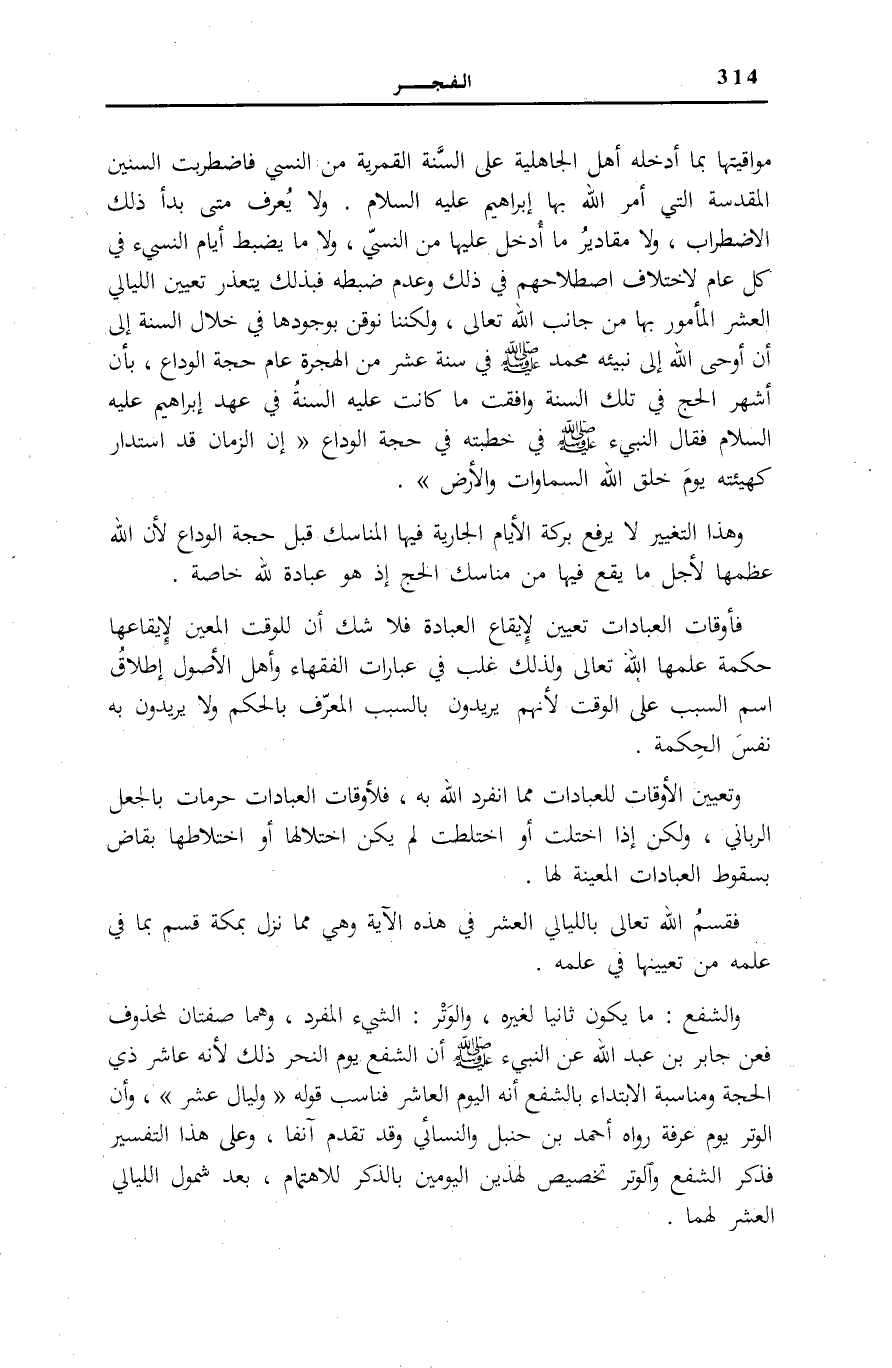 314
الفجـــر
مواقيتها بما أدخله أهل الجاهلية على السَّنة القمرية من النسي فاضطربت السنين
المقدسة التي أمر الله بها إبراهيم عليه السلام . ولا يُعرف متى بدأ ذلك
الاضطراب ، ولا مقاديرُ ما أُدخل عليها من النسيّ ، ولا ما يضبط أيام النسيء في
كل عام لاختلاف اصطلاحهم في ذلك وعدم ضبطه فبذلك يتعذر تعيين الليالي
العشر المأمور بها من جانب الله تعالى ، ولكننا نوقن بوجودها في خلال السنة إلى
أن أوحى الله إلى نبيئه محمد ﷺ في سنة عشر من الهجرة عام حجة الوداع ، بأن
أشهر الحج في تلك السنة وافقت ما كانت عليه السنةُ في عهد إبراهيم عليه
السلام فقال النبيء ﷺ في خطبته في حجة الوداع « إن الزمان قد استدار
كهيئته يومَ خلق الله السماوات والأرض » .
وهذا التغيير لا يرفع بركة الأيام الجارية فيها المناسك قبل حجة الوداع لأن الله
عظمها لأجل ما يقع فيها من مناسك الحج إذ هو عبادة لله خاصة .
فأوقات العبادات تعيين لإيقاع العبادة فلا شك أن للوقت المعين لإيقاعها
حكمة علمها الله تعالى ولذلك غلب في عبارات الفقهاء وأهل الأصول إطلاقُ
اسم السبب على الوقت لأنهم يريدون بالسبب المعرّف بالحكم ولا يريدون به
نفسَ الحِكمة .
وتعيين الأوقات للعبادات مما انفرد الله به ، فلأوقات العبادات حرمات بالجعل
الرباني ، ولكن إذا اختلت أو اختلطت لم يكن اختلالها أو اختلاطها بقاض
بسقوط العبادات المعينة لها .
فقسمُ الله تعالى بالليالي العشر في هذه الآية وهي مما نزل بمكة قسم بما في
علمه من تعيينها في علمه .
والشفع : ما يكون ثانيا لغيره ، والوَتْر : الشيء المفرد ، وهما صفتان لمحذوف
فعن جابر بن عبد الله عن النبيء ﷺ أن الشفع يوم النحر ذلك لأنه عاشر ذي
الحجة ومناسبة الابتداء بالشفع أنه اليوم العاشر فناسب قوله « وليال عشر » ، وأن
الوتر يوم عرفة رواه أحمد بن حنبل والنسائي وقد تقدم آنفا ، وعلى هذا التفسير
فذكر الشفع والوتر تخصيص لهذين اليومين بالذكر للاهتمام ، بعد شمول الليالي
العشر لهما .